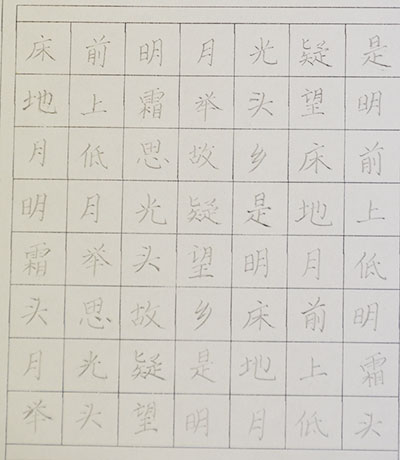 床前明月光疑是
地上霜举头望明
月低思故乡床前
明月光疑是地上
霜举头望明月低
头思故乡床前明
月光疑是地上霜
举头望明月低头